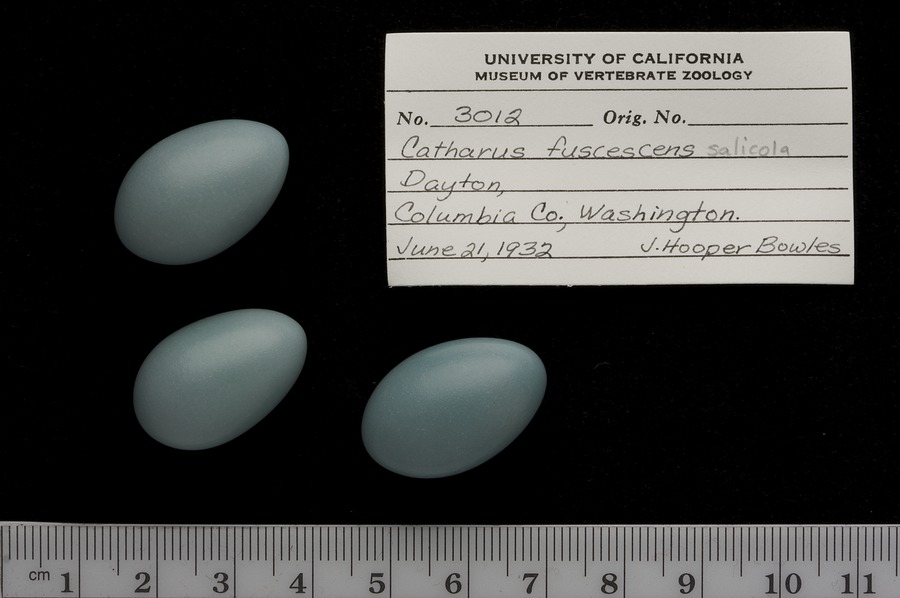 UNIVERSITY OF CALIFORNIA
MUSEUM OF VERTEBRATE ZOOLOGY
No. 3012 Orig. No.
Catharus fuscescens salicola
Dayton,
Columbia Co., Washington.
June 21, 1932 J. Hooper Bowles
cm 1 2 3 4 5 6 7 8 9 10 11